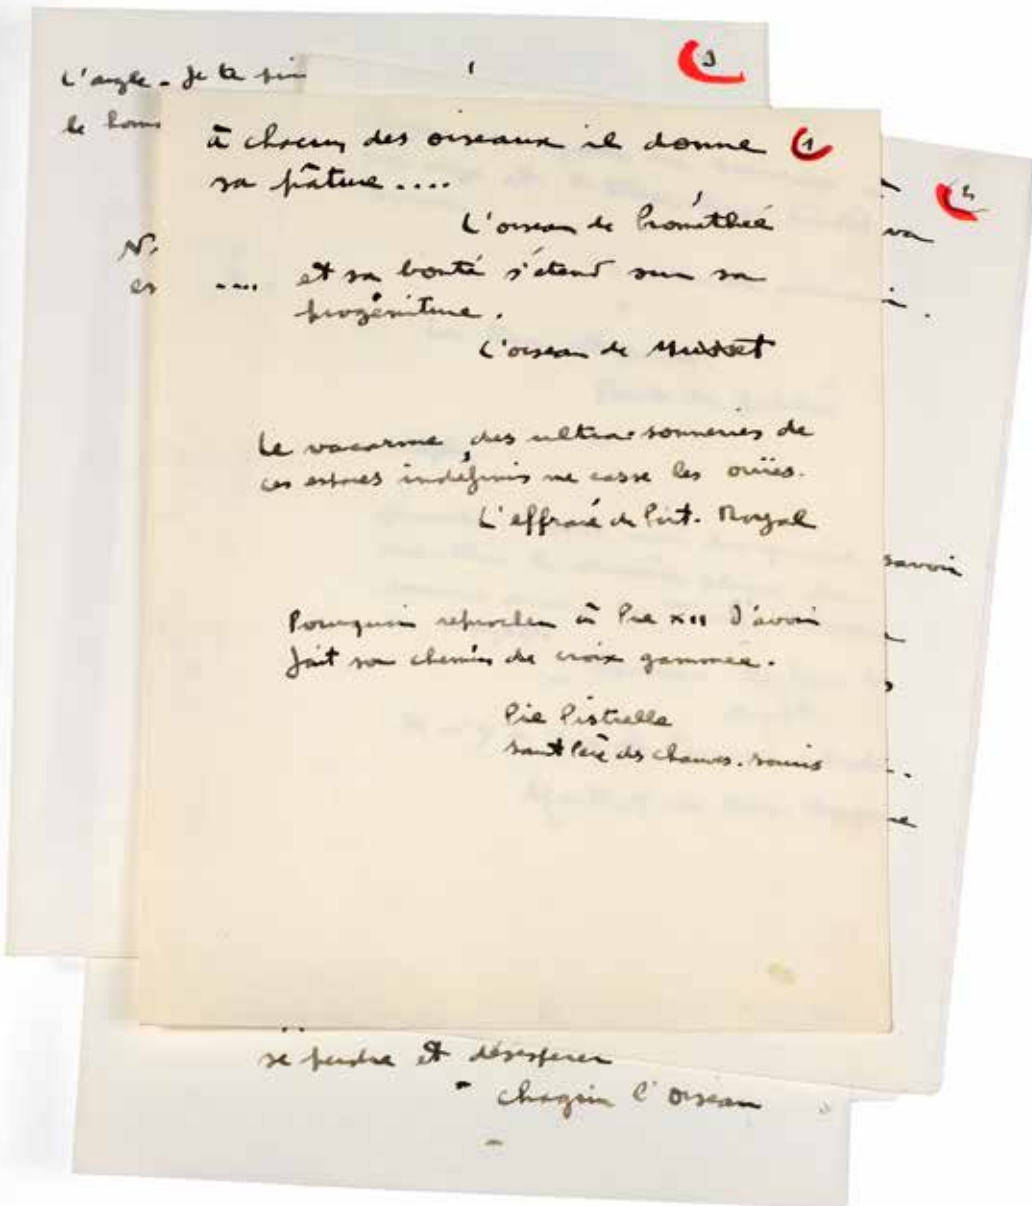 3
le
à chacun des oiseaux il donne 1
sa pâture....
L'oiseau de Prométhée
.... et sa bonté s'étend sur sa
progéniture.
L'oiseau de Musset
Le vacarme des ultra-sonneries de
ces espaces indéfinis me casse les ouïes.
L'effraie de Port-Royal
Pourquoi reprocher à Pie XII d'avoir
fait son chemin de croix gammée.
Pie Pistrelle
Saint Père des chauves-souris
va
savoir
se perdre et désespérer
chagrin l'oiseau